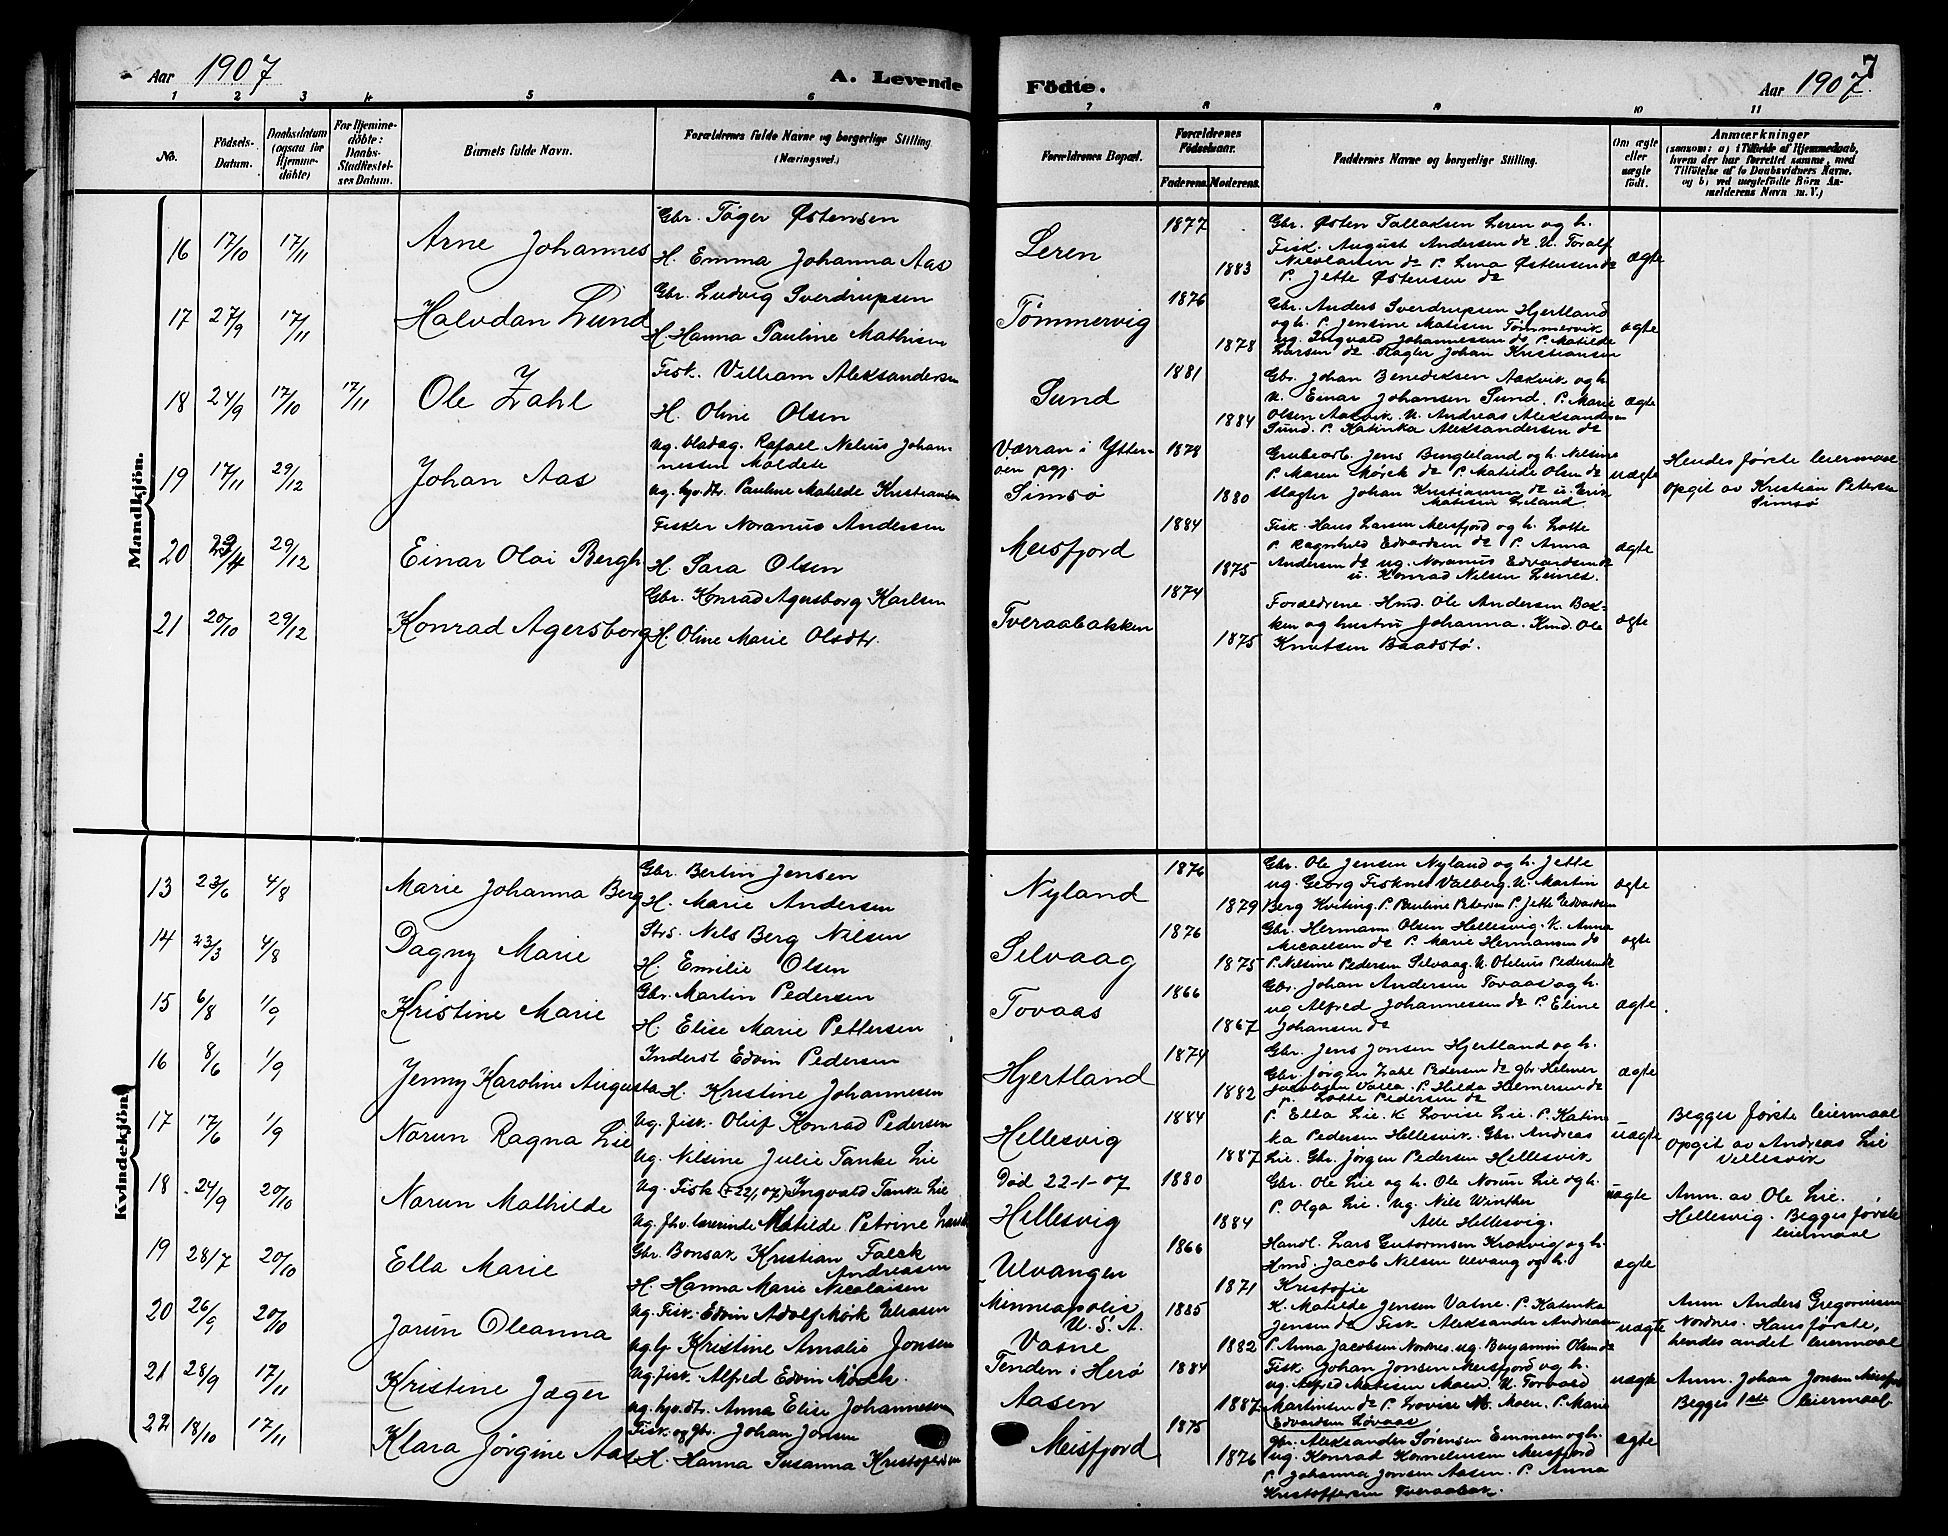 Aar 1907
A. Levende
Födte.
Aar 1907.
7
1 2 3 4 5 6 7 8 9 10 11
No.
Födsels-
Datum.
Daabsdatum
(ogsaa for
Hjemme-
döbte)
For Hjemme-
döbte:
Daabs-
Stadfæstel-
ses Datum.
Barnets fulde Navn.
Forældrenes fulde Navne og borgerlige Stilling
(Næringsvei.)
Forældrenes Bopæl.
Forældrenes
Födselsaar.
Faderens. Moderens.
Faddernes Navne og borgerlige Stilling.
Om ægte
eller
uægte
födt.
Anmærkninger
(saasom: a) i Tilfælde af Hjemmedaab,
hvem der har forrettet samme, med
Tilföielse af to Daabsvidners Navne,
og b) ved uægtefödte Börn An-
melderens Navn m. V.)
Mandkjön.
16 17/10 17/11 Arne Johannes
Gbr. Tøger Østensen
H. Emma Johanna Aas
Leren 1877 1883
Gbr. Østen Tallaksen Leren og h.
Fisk. August Andersen do U. Toralf
Nicolaisen do P. Lina Østensen do
P. Jette Østensen do
ægte
17 27/9 17/11 Halvdan Lund
Gbr. Ludvig Sverdrupsen
H. Hanna Pauline Mathisen
Tømmervig 1876 1878
Gbr. Anders Sverdrupsen Hjertland
og h. P. Jensine Matisen Tømmervik
ug. Ingvald Johannesen do P. Matilde
Larsen do Slagter Johan Kristiansen
ægte
18 24/9 17/10 17/11 Ole Zahl
Fisk. Villiam Aleksandersen
H. Oline Olsen
Sund 1881 1884
Gbr. Johan Benediksen Aakvik og h.
U. Einar Johansen Sund. P. Marie
Olsen Aakvik. U. Andreas Aleksandersen
Sund. P. Katinka Aleksandersen do
ægte
19 17/11 29/12 Johan Aas
Ug. Rafael Nelius Johan-
nessen
ug. hjv. dt. Pauline Matilde Kristiansen
Værran i Ytter-
øen pgj.
Simsø 1878 1880
Grubearb. Jens Bingleland og h. Nilsine
P. Maren Mørck do P. Matilde Olsen do
slagter Johan Kristiansen do u. Erik
Matisen Leland
uægte
Hendes første leiermaal
opgit av Kristian Petersen
Simsø
20 29/12 Einar Olai Bergh
Fisker Noranus Andersen
H. Sara Olsen
Meisfjord 1884 1875
Fisk. Hans Larsen Meisfjord og h. Lotte
P. Ragnhild Edvardsen do P. Anna
Andersen do ug. Noranus Edvardsen do
u. Konrad Nilsen Leines.
ægte
21 20/10 29/12 Konrad Agersborg
Gbr. Konrad Agersborg Karlsen
H. Oline Marie Olsdtr.
Tveraabakken 1874 1875
Forældrene. Hmd. Ole Andersen Bak-
ken og hustru Johanna. Kmd. Ole
Knutsen Baadstø.
ægte
Kvindekjön.
13 23/6 4/8 Marie Johanna Berg
Gbr. Bertin Jensen
H. Marie Andersen
Nyland 1876 1879
Gbr. Ole Jensen Nyland og h. Jette
ug. Georg Fisknes Valberg. U. Martin
Berg Kviting. P. Pauline Petersen P. Jette Edvardsen
ægte
14 23/3 4/8 Dagny Marie
Strs. Nils Berg Nilsen
H. Emilie Olsen
Selvaag 1876 1875
Gbr. Hermann Olsen Hellesvig. K. Anna
Micaelsen do P. Marie Hermansen do
P. Nilsine Pedersen Selvaag. U. Otelius Pedersen do
ægte
15 6/8 1/9 Kristine Marie
Gbr. Martin Pedersen
H. Elise Marie Pettersen
Tovaas 1866 1867
Gbr. Johan Andersen Tovaas og h.
ug Alfred Johannesen do P. Eline
Johansen do
ægte
16 8/6 1/9 Jenny Karoline Augusta
Inderst Edvin Pedersen
H. Kristine Johannesen
Hjertland 1874 1882
Gbr. Jens Jonsen Hjertland og h.
Gbr. Jørgen Zahl Pedersen do gbr. Helmer
Jacobsen Valla. P. Hilda Helmersen do
P. Lotte Pedersen do
ægte
17 17/6 1/9 Norun Ragna Lie
Ug. fisk. Oluf Konrad Pedersen
Ug. Nilsine Julie Tanke Lie
Hellesvig 1884 1887
P. Ella Lie. K. Lovise Lie. P. Katin
ka Pedersen Hellesvik. Gbr. Andreas
Lie. Gbr. Jørgen Pedersen Hellesvik
uægte
Begges første leiermaal
Opgit av Andreas Lie
Vellesvik
18 24/9 20/10 Norun Mathilde
Ug. Fisk († 22/1 07) Ingvald Tanke Lie
Ug. fhv. lærerinde Matilde Petrine
Død 22-1-07
Hellesvig 1880 1884
Gbr. Ole Lie og h. Ole Norun Lie og h.
P. Olga Lie. Ug. Nils Winther
Alle Hellesvig.
uægte
Anm. av Ole Lie.
Hellesvig. Begges første
leiermaal
19 28/7 20/10 Ella Marie
Gbr. Bonsak Kristian Falck
Andreasen
H. Hanna Marie Nicolaisen
Ulvangen 1866 1871
Handl. Lars Gutormsen Krokvig og h.
Hmd. Jacob Nilsen Ulvang og h.
Kristofie
ægte
20 26/9 20/10 Jorun Oleanna
Ug. Fisk. Edvin Adolf Mørk Eliasen
ug. tj. Kristine Amalie Jonsen
Minneapolis
U.S.A.
Vatne 1885 1882
K. Matilde Jensen Vatne. P. Katinka
Jensen do Fisk Aleksander Andreasen
P. Anna Jacobsen Nordnes. ug. Benjamin Olsen do
uægte
Anm Anders Gregoriusen
Nordnes. Hans første,
hendes andet leiermaal
21 28/9 17/11 Kristine Jæger
Ug. fisk. Alfred Edvin Mørch.
ug. hjv. dt. Anna Elise Johannesen
Tenden i Herø
Aasen 1884 1887
Fisk. Johan Jonsen Meisfjord og h.
ug. Alfred Matisen Moen. U. Torvald
Martinsen do P. Lovise M. Moen. P. Marie
Edvardsen Løvaas
uægte
Anm. Johan Jonsen Meisfjord
Begges 1ste leiermaal
22 18/10 17/11 Klara Jørgine Aas
Fisk. og gbr. Johan Jonsen
H. Hanna Susanna Kristofersen
Meisfjord 1875 1876
gbr. Aleksander Sørensen Emmen og h.
ug. Konrad Korneliussen Meisfjord
P. Johanna Jonsen Aasen. P. Anna
Kristoffersen Tveraabak.
ægte